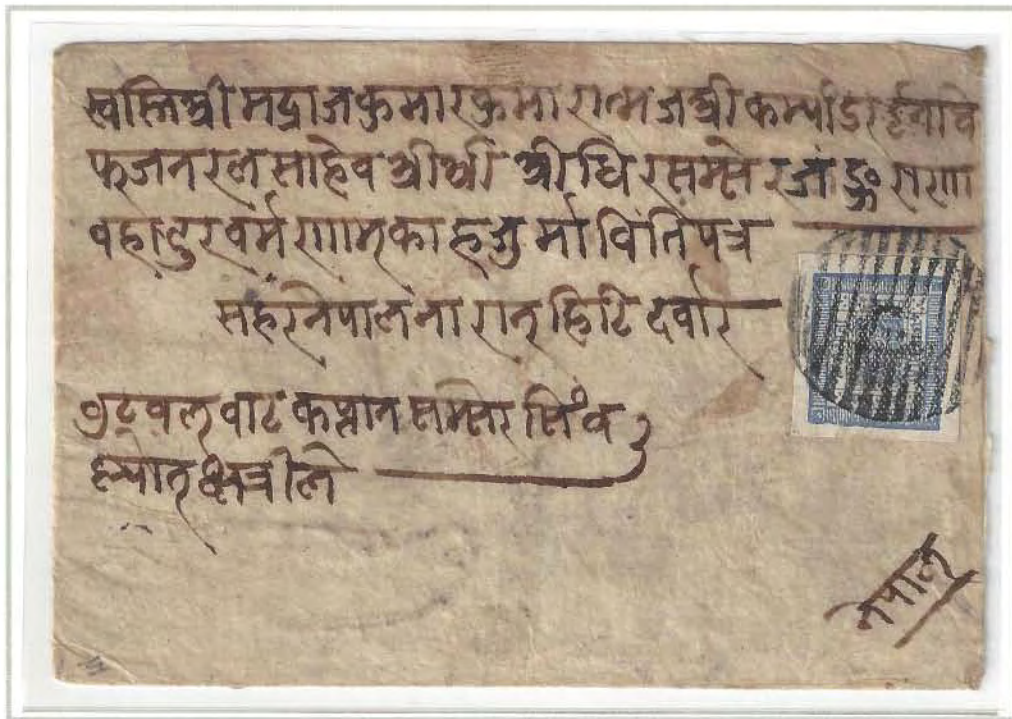 स्वस्तिश्रीमद्राजकुमारकुमारात्मजश्रीकम्याडरइनचि
फ्जनरलसाहेवश्रीश्री श्रीधिरसम्सेरजंङ्गराणा
वहादुरवर्मराणाम्काहजुर्माविंतिपत्र
सहरनेपालनारान्हिटिदर्वार
वुटवलवाट कप्तान सम्सेरसिंव
क्षत्रीले
नेपाल्